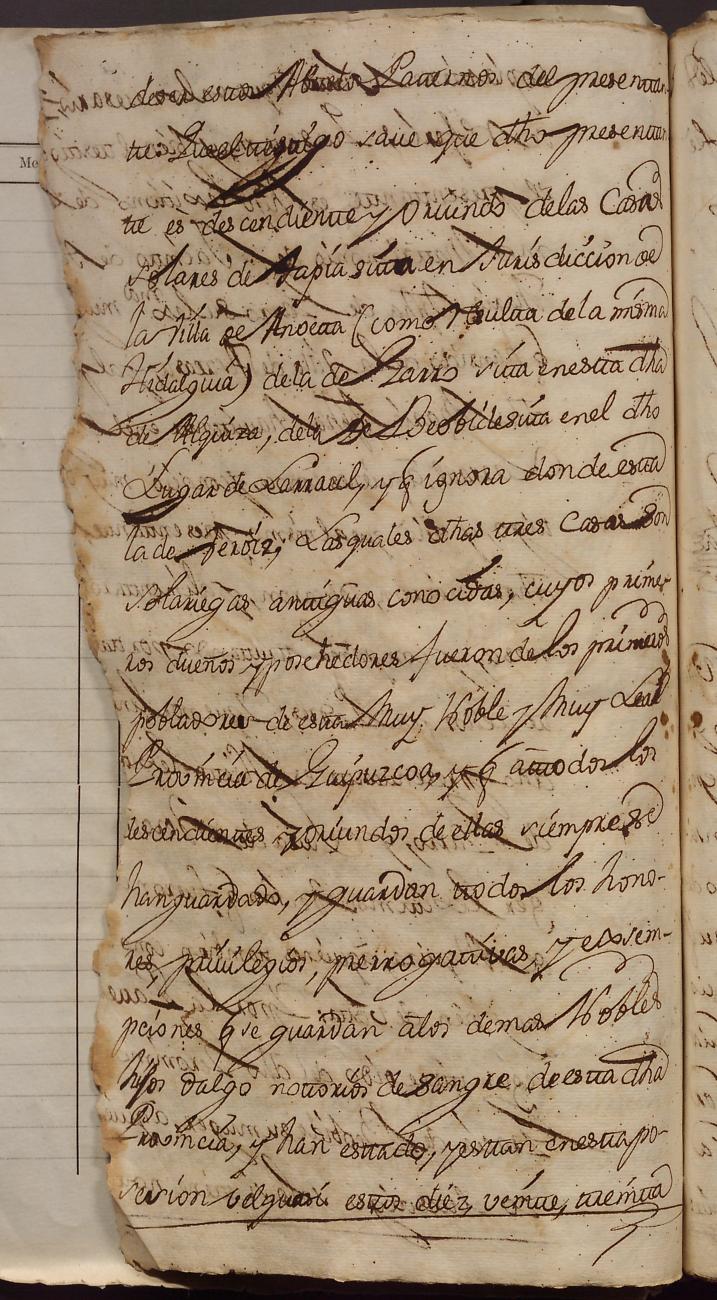 Abuelos Paternos del presentan
te saue que dho presentan
te es descendiente y oriundo de las Casas
Solares de Tapia sita en Jurisdiccion de
la Villa de Anoeta (como resulta de la misma
Hidalguia) de la de sita en esta dha
de Alquiza, de la de sita en el dho
Lugar de Larraul, y q ignora donde esta
la de Las quales dhas tres Casas son
solariegas antiguas conocidas, cuyos prime-
ros dueños y posehedores fueron de los primeros
pobladores de esta Muy Noble y Muy Leal
Provincia de Guipuzcoa, y q a todos los
descendientes y oriundos de ellas siempre se
han guardado, y guardan todos los hono-
res, privilegios, prerrogativas, y exsem-
pciones q se guardan a los demas Nobles
hijos dalgo notorios de sangre de esta dha
Provincia, y han estado, y estan en esta po-
sesion estos diez, veinte, treinta